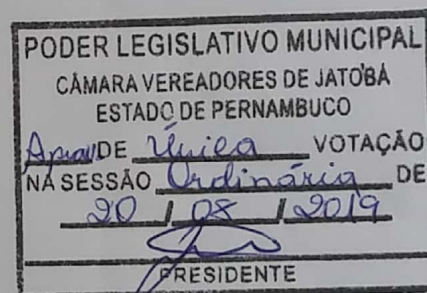 PODER LEGISLATIVO MUNICIPAL
CÂMARA VEREADORES DE JATOBÁ
ESTADO DE PERNAMBUCO
DE Única VOTAÇÃO
NA SESSÃO Ordinária DE
20 / 08 / 2019
PRESIDENTE